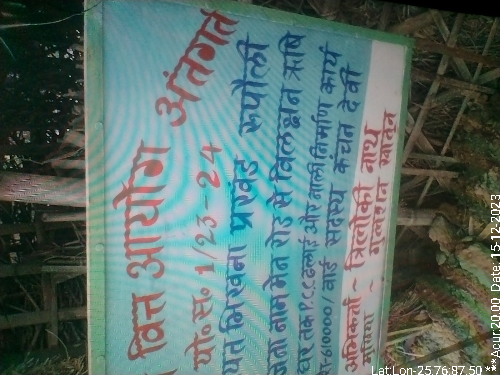 वित्त आयोग अंतर्गत
यो०स० 1/23-24
यत भिखना प्रखंड रुपौली
जना नाम मेन रोड से विलक्षन ऋषि
घर तक P.C.C ढलाई और नाली निर्माण कार्य
610000/ वार्ड सदस्य कंचन देवी
अभिकर्ता - त्रिलोकी नाथ
मुखिया - गुलशन खातून
Lat Lon-25.76,87.50 **
**Aour 20.00, Date: 15-12-2023